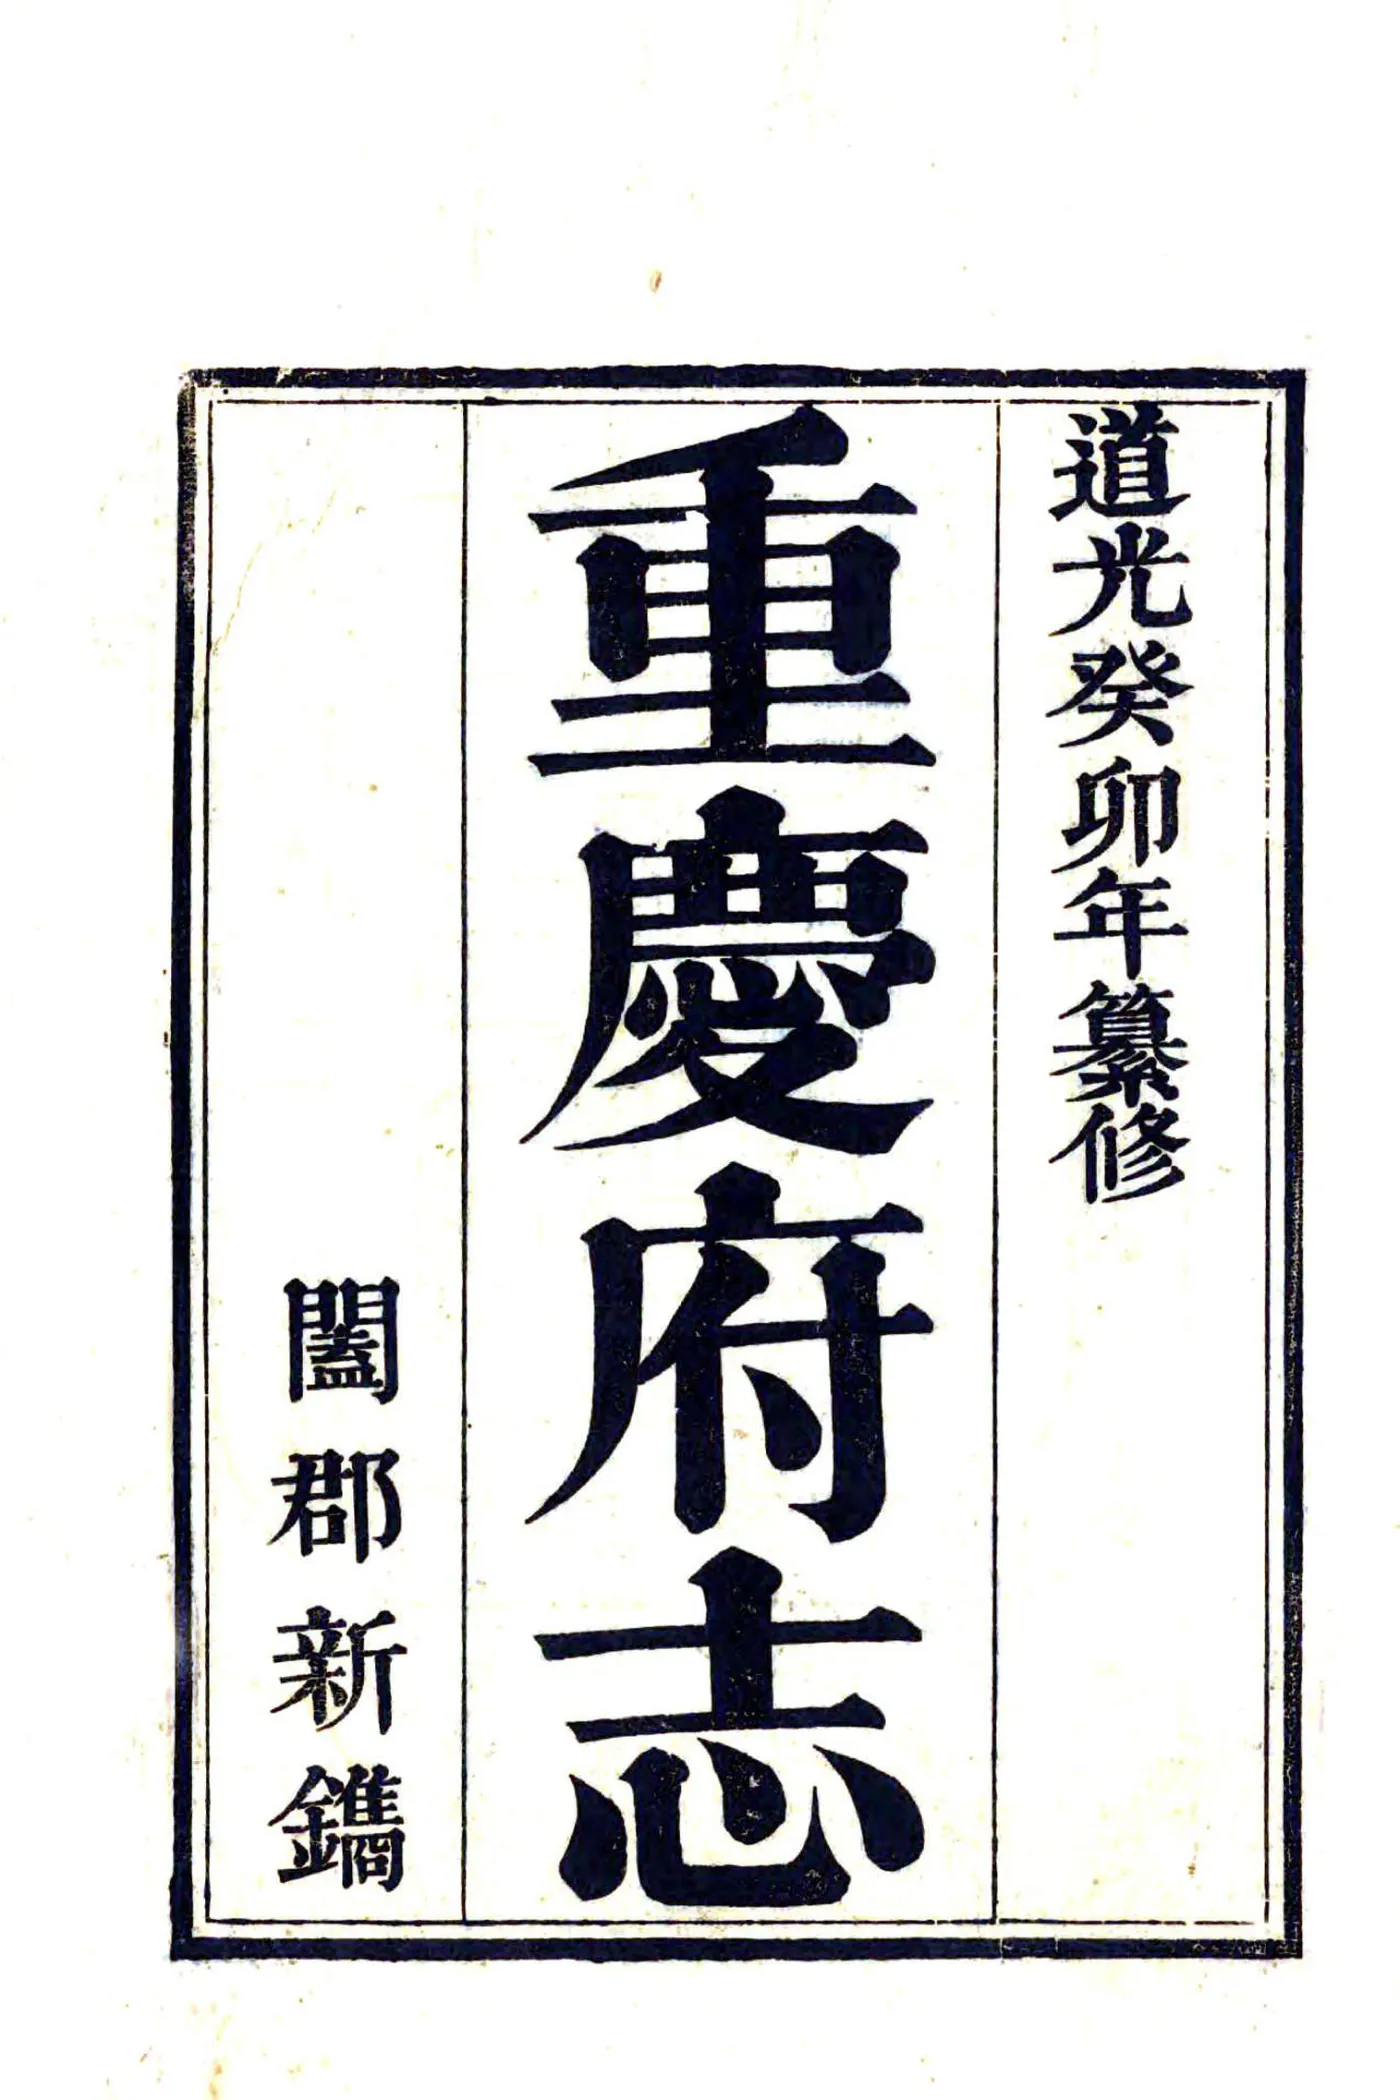 道光癸卯年纂修
重慶府志
闔郡新鐫